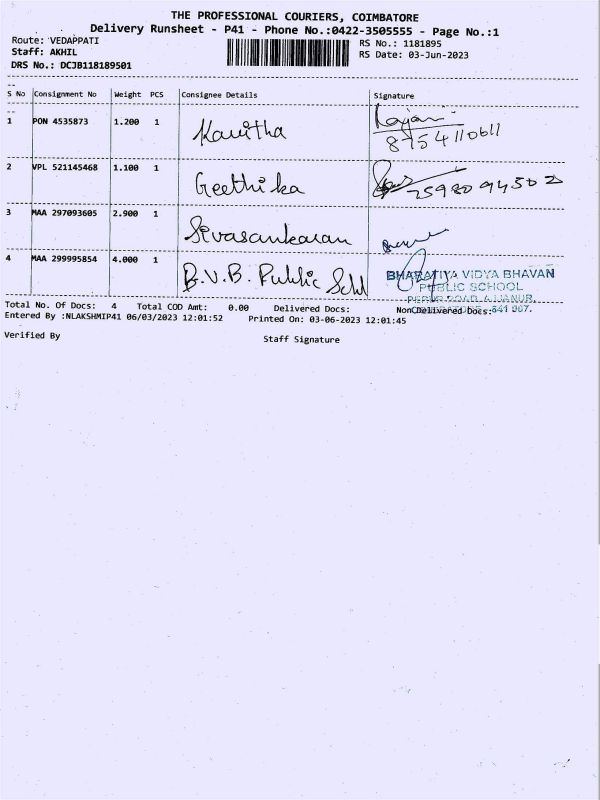 THE PROFESSIONAL COURIERS, COIMBATORE
Delivery Runsheet - P41 - Phone No.:0422-3505555 - Page No.:1
Route: VEDAPPATI RS No.: 1181895
Staff: AKHIL RS Date: 03-Jun-2023
DRS No.: DCJB118189501
S No Consignment No Weight PCS Consignee Details Signature
1 PON 4535873 1.200 1 Kavitha
8754110611
2 VPL 521145468 1.100 1 Geethika 2598094502
3 MAA 297093605 2.900 1 Sivasankaran
4 MAA 299995854 4.000 1 B.V.B. Public Schl
BHARATIYA VIDYA BHAVAN
PUBLIC SCHOOL
AJJANUR,
641 907.
Total No. Of Docs: 4 Total COD Amt: 0.00 Delivered Docs: Non Delivered Docs:
Entered By :NLAKSHMIP41 06/03/2023 12:01:52 Printed On: 03-06-2023 12:01:45
Verified By Staff Signature